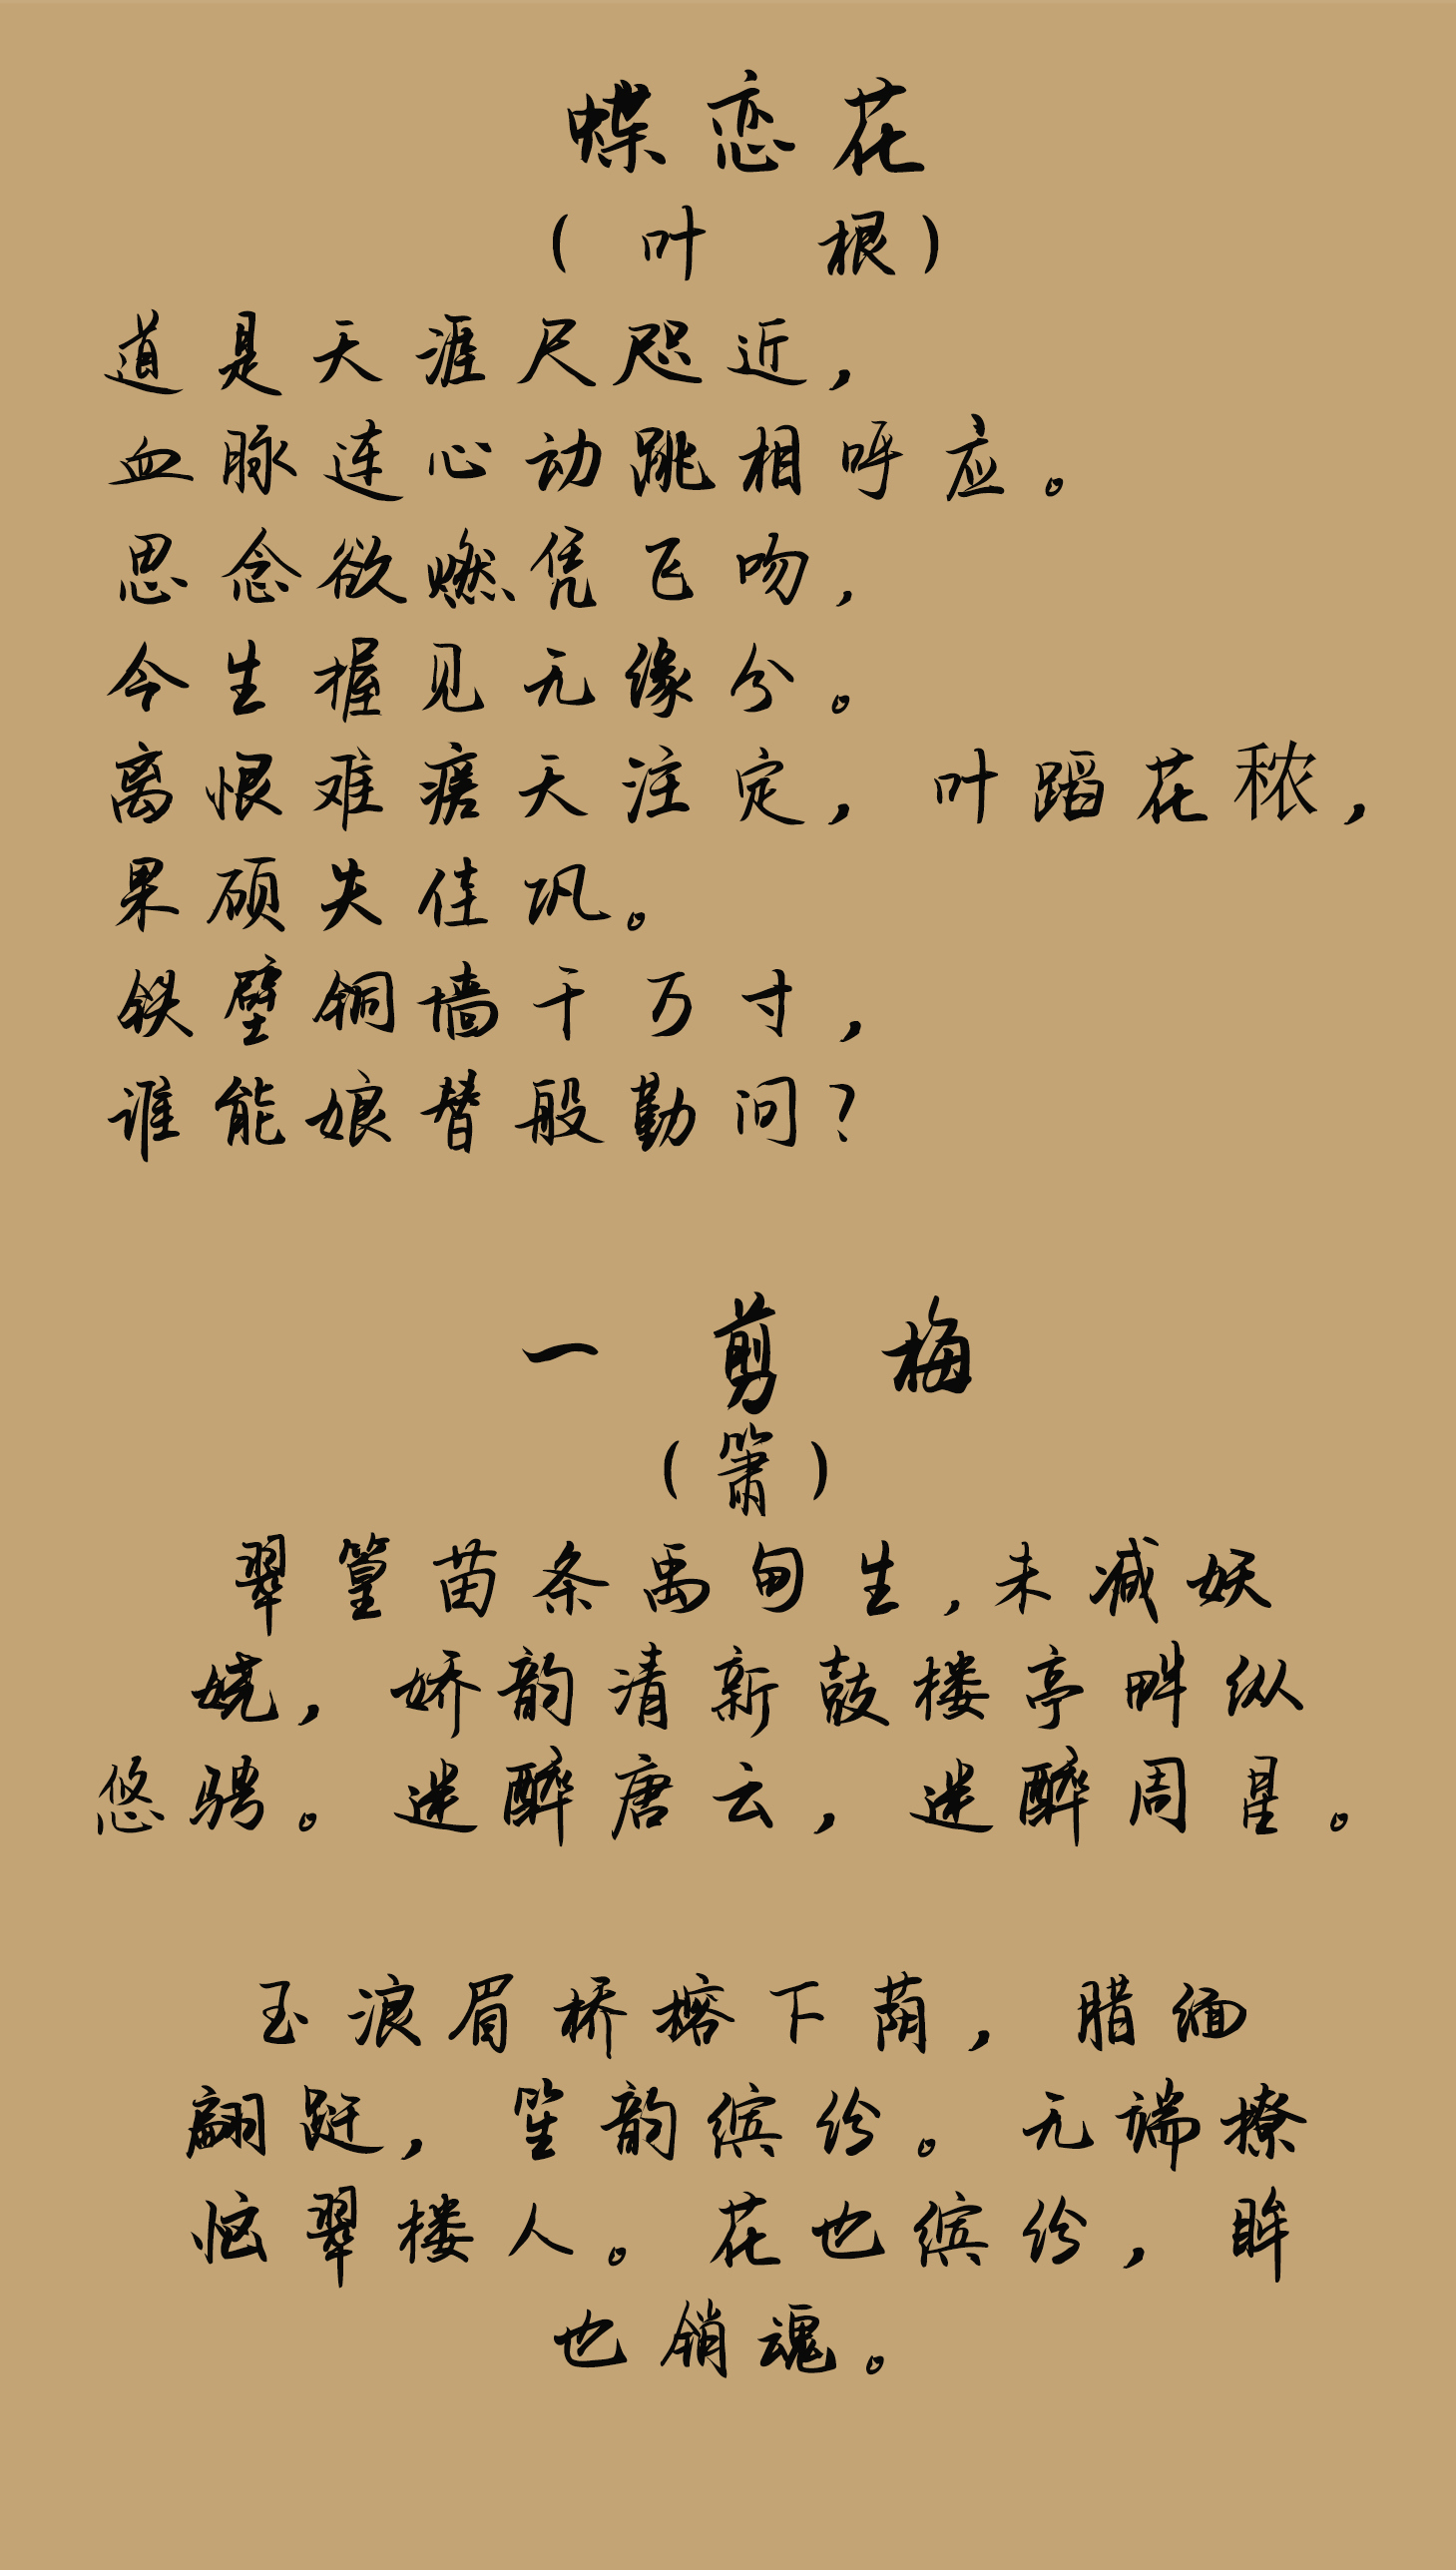 蝶恋花
(叶 根)
道是天涯尺咫近,
血脉连心动跳相呼应。
思念欲燃凭飞吻,
今生握见无缘分。
离恨难瘥天注定, 叶蹈花秾,
果硕失佳巩。
铁壁铜墙千万寸,
谁能娘替般勤问?
一 剪 梅
(箫)
翠篁苗条禹甸生,未减妖
娆, 娇韵清新鼓楼亭畔纵
悠骋。迷醉唐云, 迷醉周星。
玉浪眉桥榕下荫, 腊缅
翩跹, 笙韵缤纷。无端撩
恼翠楼人。花也缤纷, 眸
也销魂。